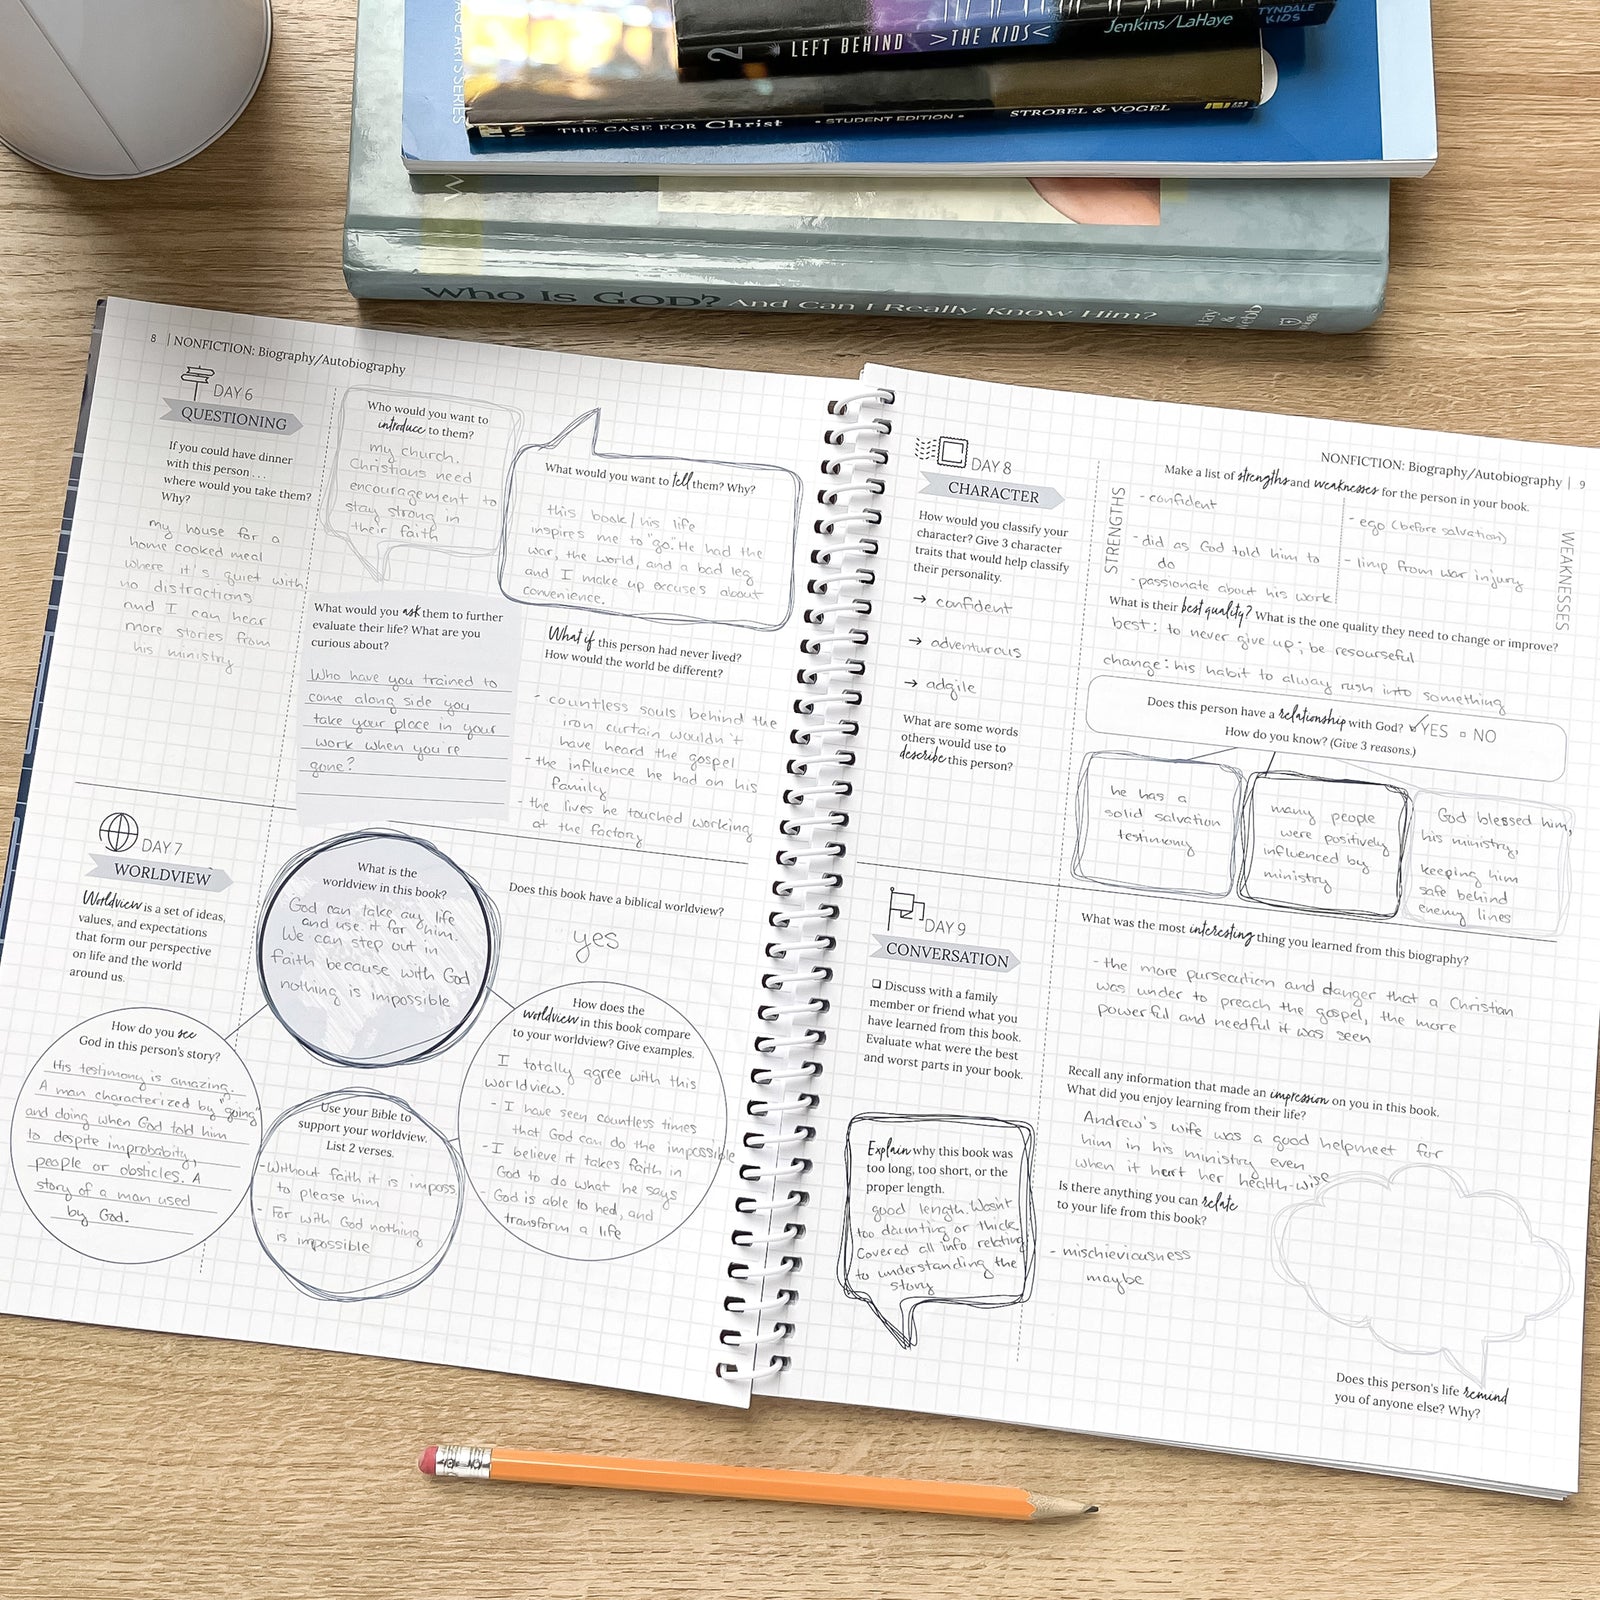 TYNDALE
KIDS
Jenkins/LaHaye
2 LEFT BEHIND >THE KIDS<
THE CASE FOR Christ - STUDENT EDITION - STROBEL & VOGEL
ARTS SERIES
W
Who Is GOD? And Can I Really Know Him?
8 | NONFICTION: Biography/Autobiography
DAY 6
QUESTIONING
If you could have dinner
with this person . . .
where would you take them?
Why?
my house for a
home cooked meal
where it's quiet with
no distractions
and I can hear
more stories from
his ministry
Who would you want to
introduce to them?
my church.
Christians need
encouragement to
stay strong in
their faith
What would you want to tell them? Why?
this book/his life
inspires me to "go." He had the
war, the world, and a bad leg
and I make up excuses about
convenience.
What would you ask them to further
evaluate their life? What are you
curious about?
Who have you trained to
come along side you
take your place in your
work when you're
gone?
What if this person had never lived?
How would the world be different?
- countless souls behind the
iron curtain wouldn't
have heard the gospel
- the influence he had on his
family
- the lives he touched working
at the factory
DAY 7
WORLDVIEW
Worldview is a set of ideas,
values, and expectations
that form our perspective
on life and the world
around us.
What is the
worldview in this book?
God can take any life
and use it for him.
We can step out in
faith because with God
nothing is impossible
Does this book have a biblical worldview?
yes
How do you see
God in this person's story?
His testimony is amazing.
A man characterized by "going"
and doing when God told him
to despite improbabity,
people or obsticles. A
story of a man used
by God.
Use your Bible to
support your worldview.
List 2 verses.
- Without faith it is imposs
to please him
- For with God nothing
is impossible
How does the
worldview in this book compare
to your worldview? Give examples.
I totally agree with this
worldview.
- I have seen countless times
that God can do the impossible
- I believe it takes faith in
God to do what he says
- God is able to heal, and
transform a life
NONFICTION: Biography/Autobiography | 9
DAY 8
CHARACTER
How would you classify your
character? Give 3 character
traits that would help classify
their personality.
→ confident
→ adventurous
→ adgile
What are some words
others would use to
describe this person?
Make a list of strengths and weaknesses for the person in your book.
STRENGTHS
- confident
- did as God told him to
do
- passionate about his work
- ego (before salvation)
- limp from war injury
WEAKNESSES
What is their best quality? What is the one quality they need to change or improve?
best: to never give up; be resourseful
change: his habit to alway rush into something
Does this person have a relationship with God? ✓YES □ NO
How do you know? (Give 3 reasons.)
he has a
solid salvation
testimony
many people
were positively
influenced by
ministry
God blessed him,
his ministry,
keeping him
safe behind
enemy lines
DAY 9
CONVERSATION
❏ Discuss with a family
member or friend what you
have learned from this book.
Evaluate what were the best
and worst parts in your book.
Explain why this book was
too long, too short, or the
proper length.
good length. Wasn't
too daunting or thick
Covered all info relating
to understanding the
story
What was the most interesting thing you learned from this biography?
- the more pursecution and danger that a Christian
was under to preach the gospel, the more
powerful and needful it was seen
Recall any information that made an impression on you in this book.
What did you enjoy learning from their life?
Andrew's wife was a good helpmeet for
him in his ministry even
when it hert her health-wise
Is there anything you can relate
to your life from this book?
- mischieviousness
maybe
Does this person's life remind
you of anyone else? Why?